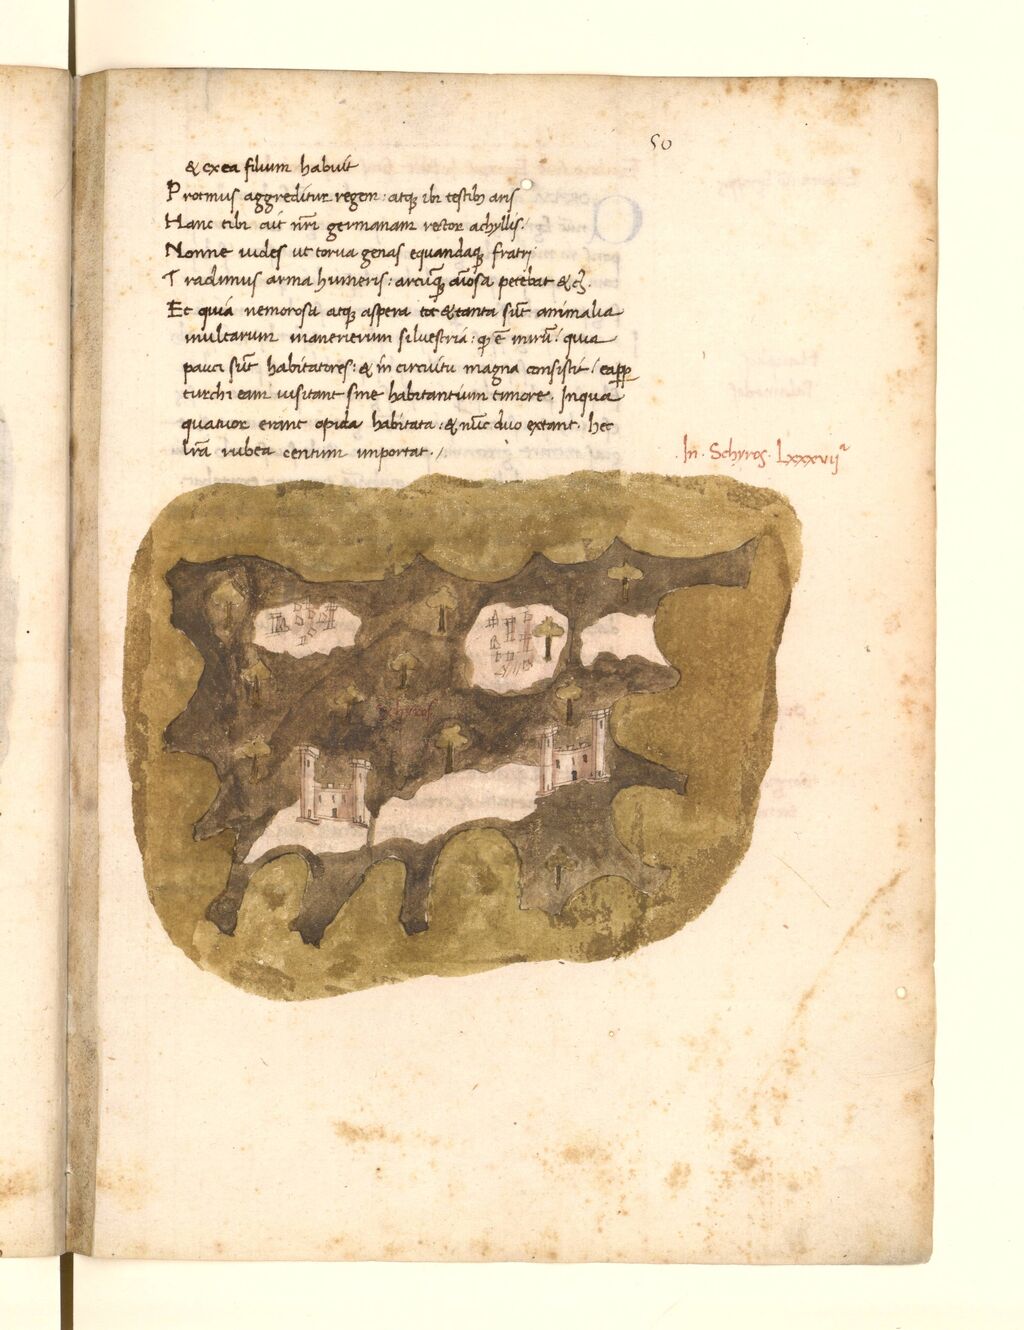 50
& ex ea filium habuit
Protinus aggreditur regem: atq; ibi testib; aris
Hanc tibi ait nr̄i germanam rector achyllis:
Nonne uides ut torua genas equandaq; fratri
Tradimus arma humeris: arcūq; aīosa petebat &c̄.
Et quia nemorosa atq; aspera tot & tanta sūt animalia
multarum manerierum siluestria: qd̄ ē mirū: quia
pauci sūt habitatores: & in circuitu magna consistit / eapp
turchi eam uisitant sine habitantium timore. Inqua
quatuor erant opida habitata: & nūc duo extant. hec
lr̄a rubea centum importat ./
.In. Schyros. Lxxxvijª
Schyros